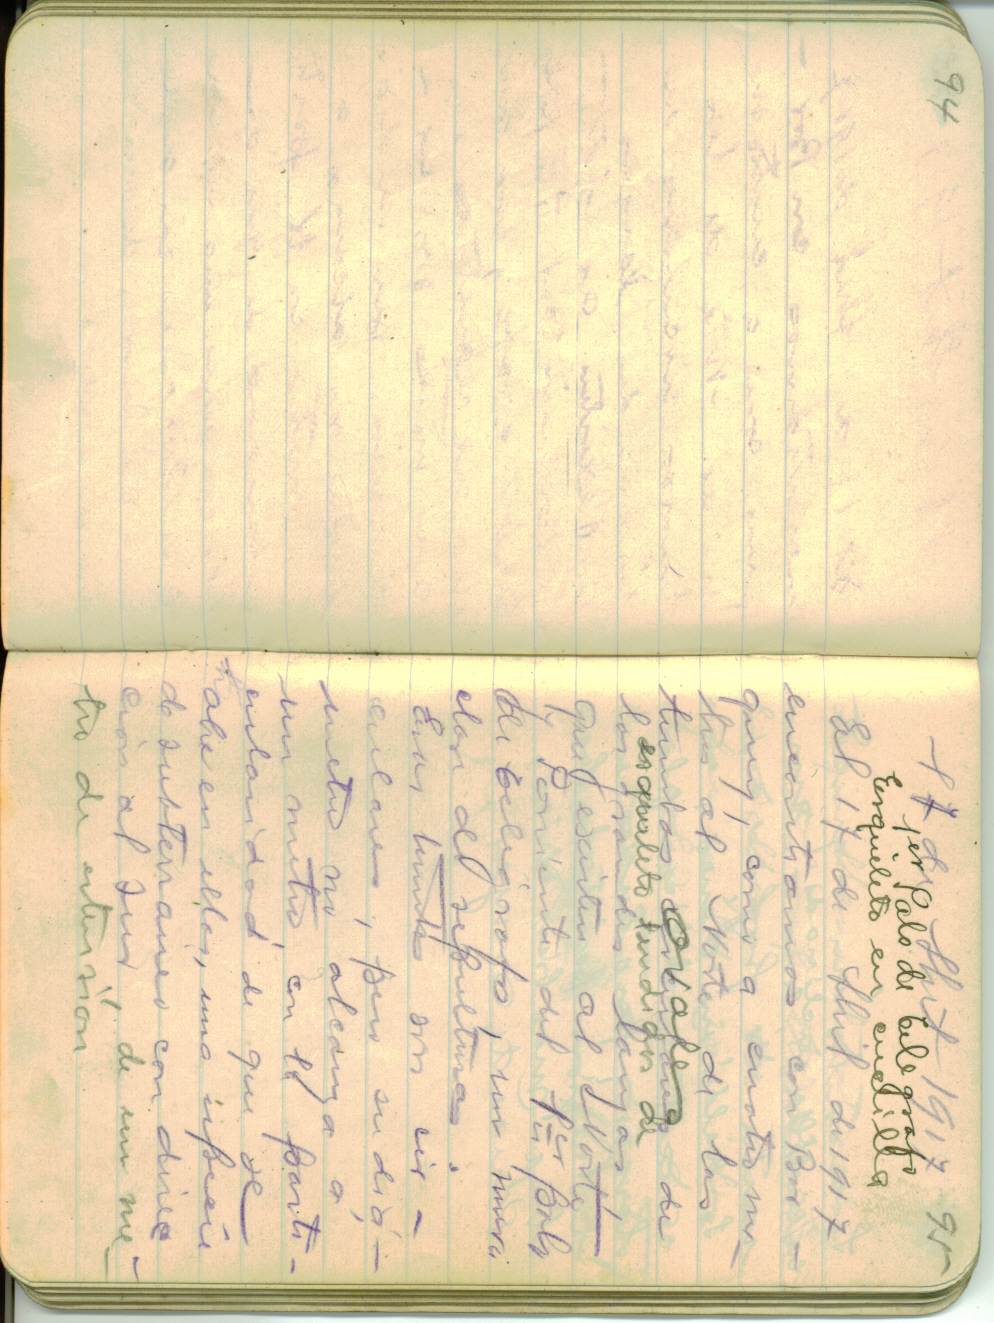 94
95
17 de Abril 1917
1er Palo de telegrafo
Esqueleto en cuclilla
El 17 de Abril de 1917
encontramos con Bor-
quez, como a cuatro me-
tros al Norte de las
tumbas ovaladas de
esqueleto tendidos de
los grandes largos
que existen al Norte
y Poniente del 1er Palo
de telégrafo, un nuevo
clan de sepulturas.
Esas tumbas son cir-
culares, pero su diá-
metro no alcanza a
un metro, con la parti-
cularidad de que se
abre en ellas, una especie
de subterraneo con direc
ción al Sud, de un me-
tro de extensión